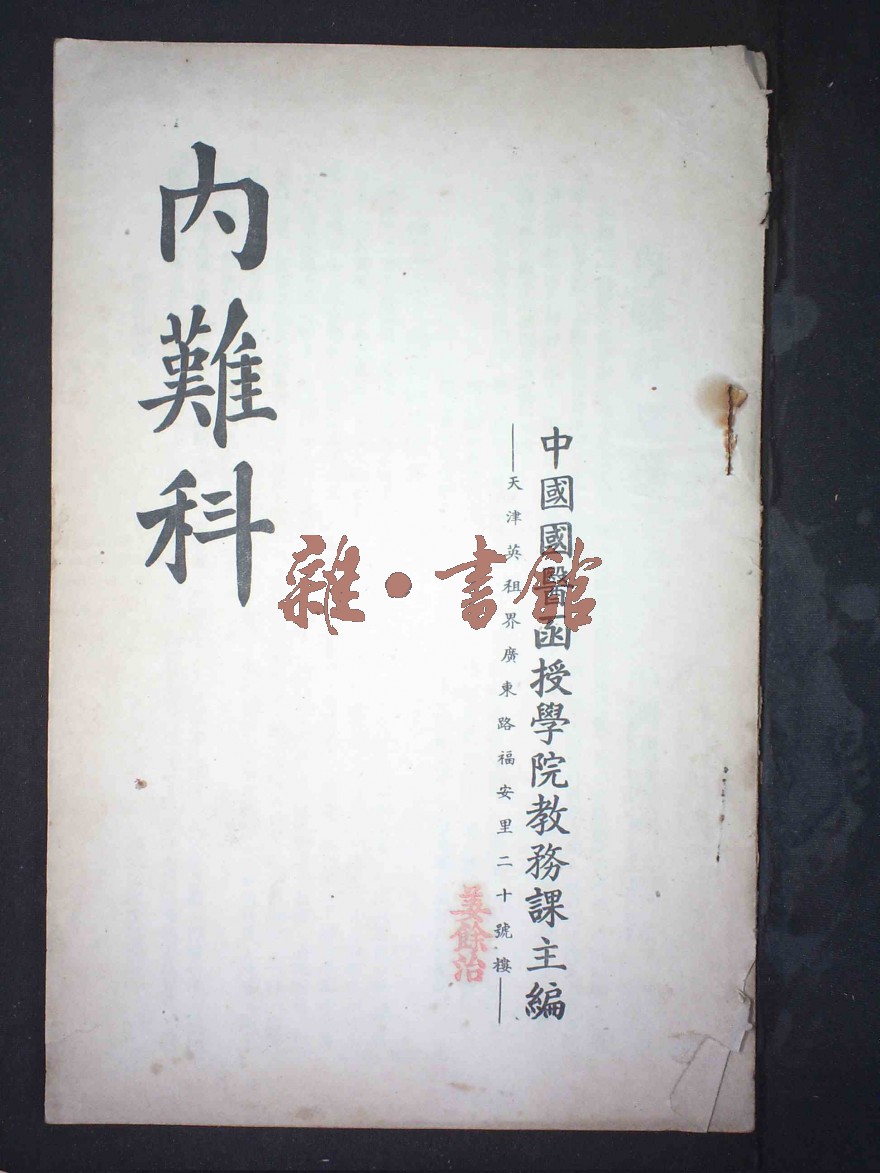 中國國醫函授學院教務課主編
—天津英租界廣東路福安里二十號樓—
姜餘治
內難科
雜·書館